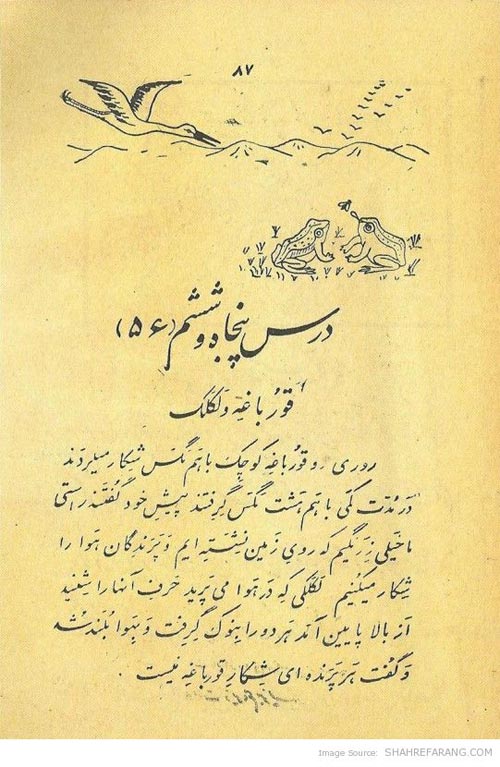 ۸۷
درس پنجاه و ششم (۵۶)
قورُباغِه و لَکلَک
روزی دو قورباغِه کوچِک باهَم مَگَس شِکار میکَردَند
دَر مُدَت کَمی باهَم هَشت مَگَس گِرِفتَند پیشِ خود گُفتَند راستی
ما خَیلی زِرَنگیم که رویِ زَمین نِشَستِه ایم وَ پَرَندِگان هَوا را
شِکار میکُنیم لَکلَکی که دَر هَوا می پَرید حَرف آنها را شِنید
اَز بالا پایین آمَد هَر دو را بِنوک گِرِفت وَ بِهَوا بُلَند شُد
وَ گُفت هَر پَرَندِه ای شِکارِ قورباغِه نیست .
Image Source: SHAHREFARANG.COM